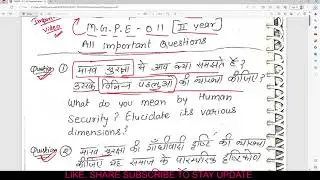 Imp
Video
M.G.P.E - 011 [II year]
All Important Questions
Question 1 मानव सुरक्षा से आप क्या समझते हैं?
उसके विभिन्न पहलुओं की व्याख्या कीजिए?
What do you mean by Human
Security? Elucidate its various
dimensions?
Question 2 मानव सुरक्षा की गाँधीवादी दृष्टि की व्याख्या
कीजिए यह समाज के पारम्परिक दृष्टिकोण
LIKE, SHARE SUBSCRIBE TO STAY UPDATE